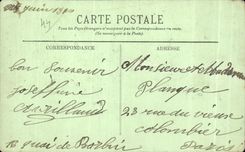 juin 19
44
CARTE POSTALE
Tous les Pays étrangers n'acceptent pas la Correspondance au recto.
(Se renseigner à la Poste)
CORRESPONDANCE
ADRESSE
bon Souvenir
Josephine
quai de Bourbon
Monsieur et Madame
Planque
23 rue du vieux
colombier
Paris